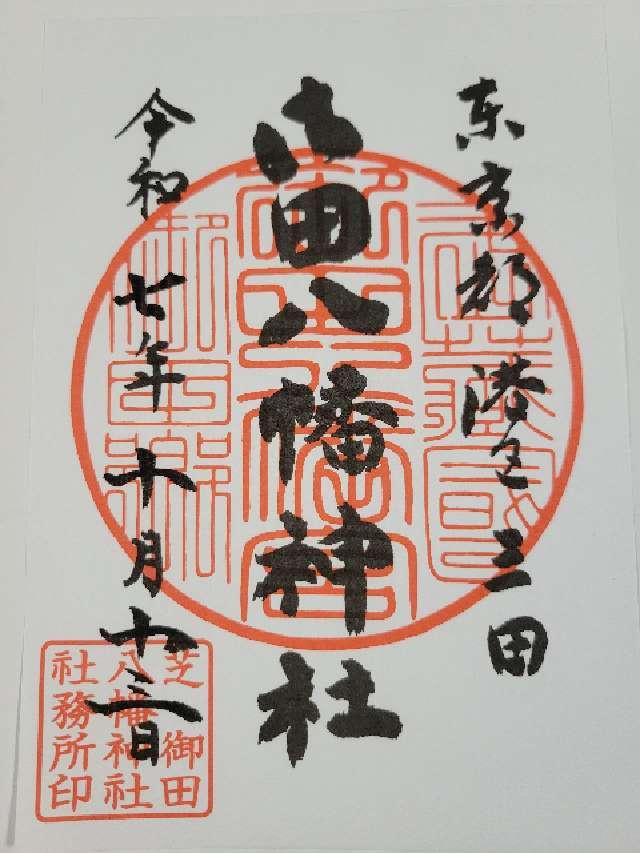 東京都港区三田
御田八幡神社
令和七年十月十三日
芝御田
八幡神社
社務所印